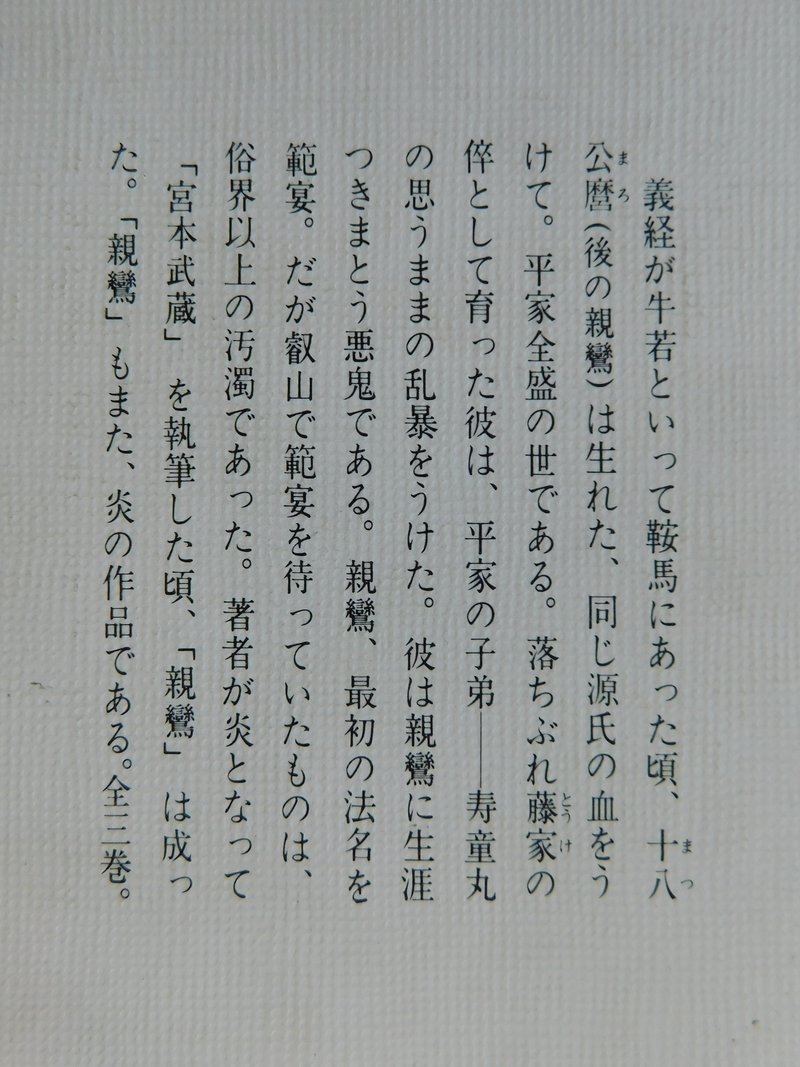 義経が牛若といって鞍馬にあった頃、十八
公麿(後の親鸞)は生れた、同じ源氏の血をう
けて。平家全盛の世である。落ちぶれ藤家の
倅として育った彼は、平家の子弟――寿童丸
の思うままの乱暴をうけた。彼は親鸞に生涯
つきまとう悪鬼である。親鸞、最初の法名を
範宴。だが叡山で範宴を待っていたものは、
俗界以上の汚濁であった。著者が炎となって
「宮本武蔵」を執筆した頃、「親鸞」は成っ
た。「親鸞」もまた、炎の作品である。全三巻。
まつ
まろ
とうけ